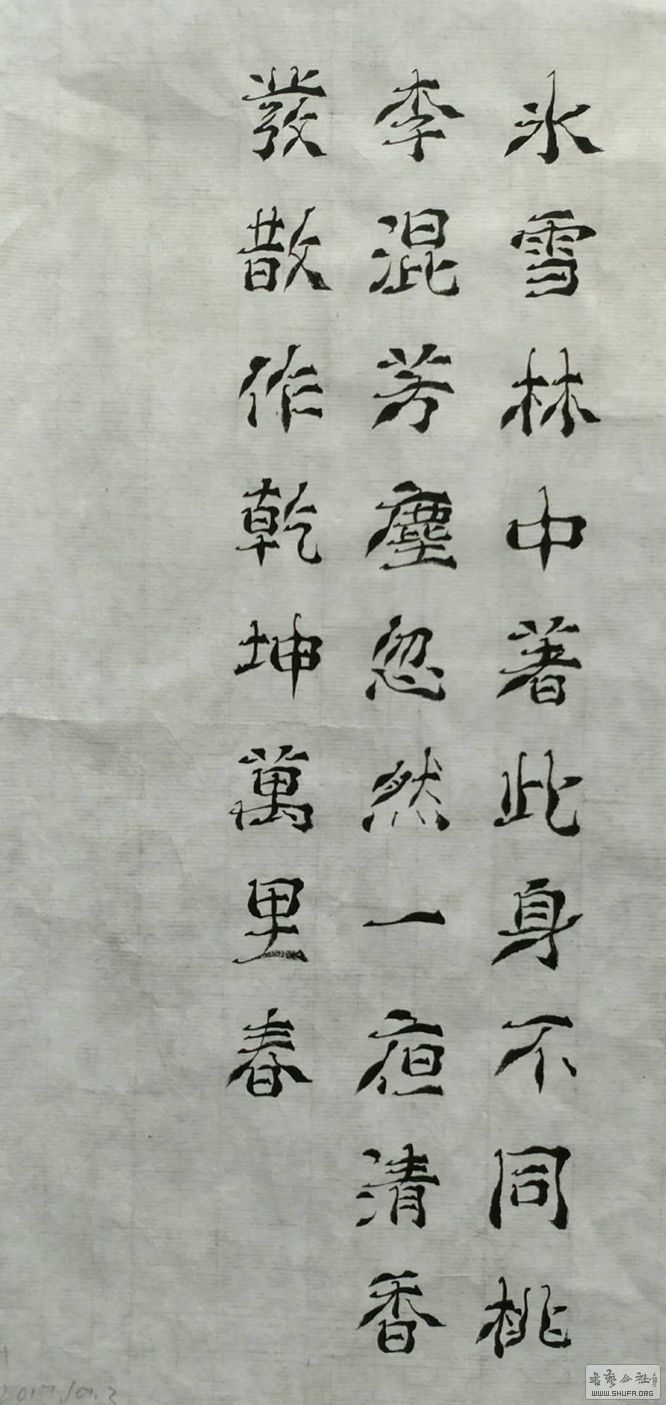 氷雪林中著此身不同桃
李混芳塵忽然一夜清香
發散作乾坤萬里春
WWW.SHUFA.ORG